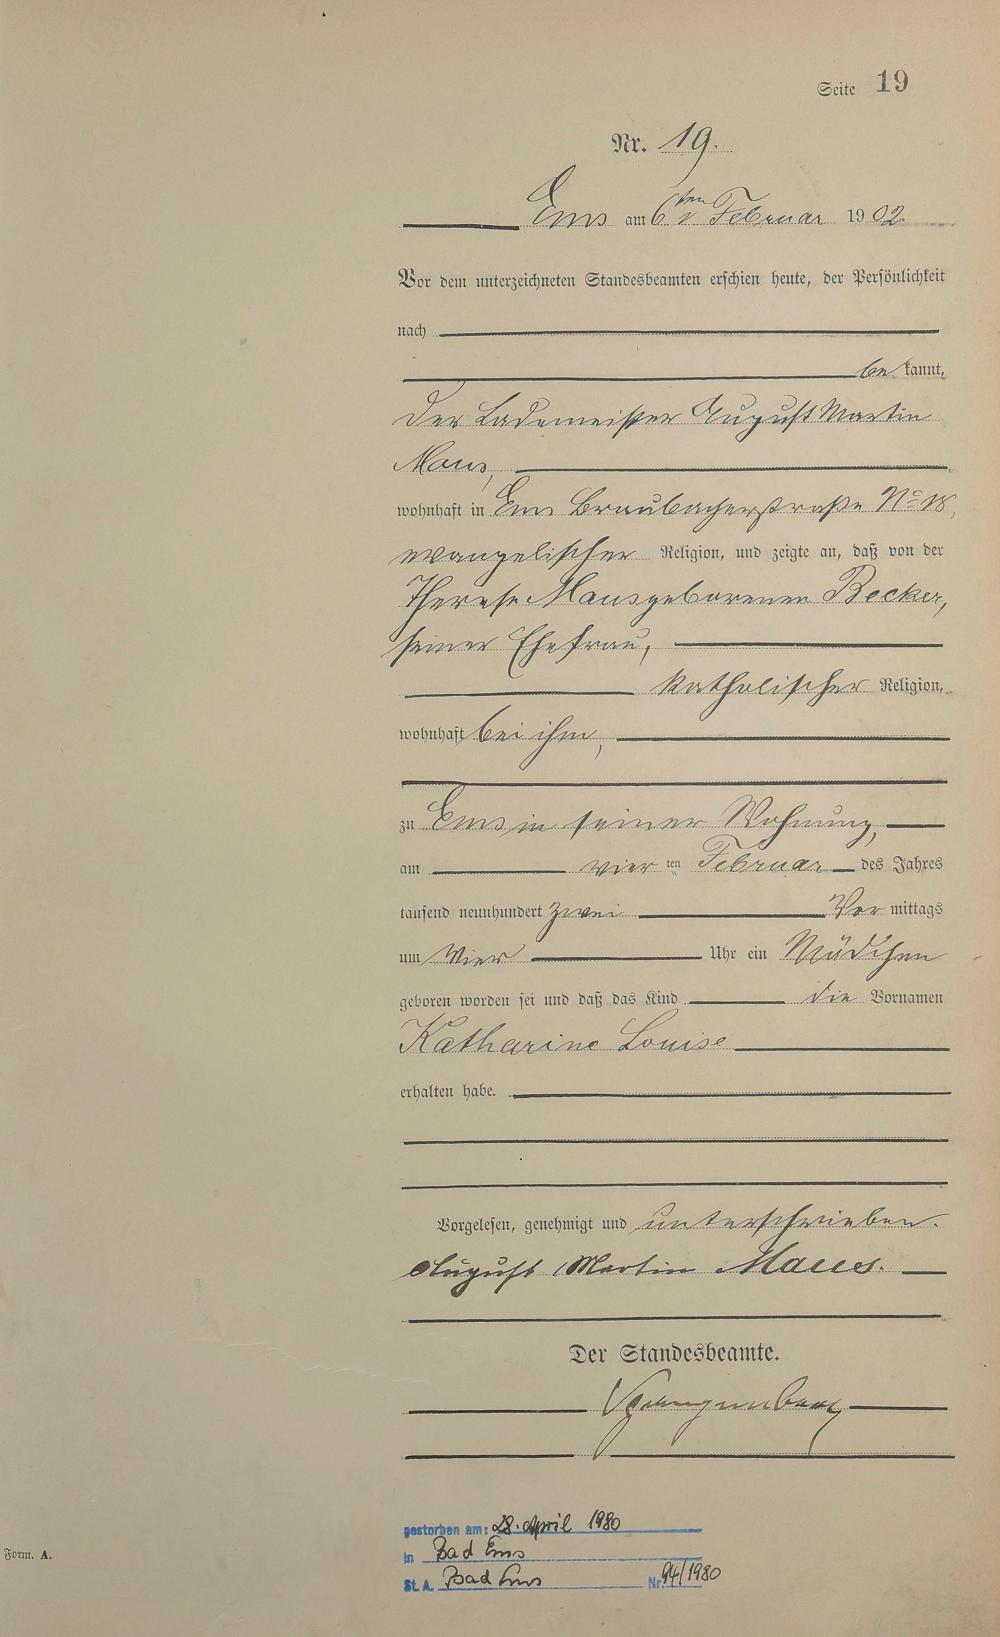 Seite 19
Nr. 19.
Ems am 6ten Februar 1902
Vor dem unterzeichneten Standesbeamten erschien heute, der Persönlichkeit
nach
bekannt,
der Lademeister August Martin
Maus,
wohnhaft in Ems Braubacherstraße No 18,
evangelischer Religion, und zeigte an, daß von der
Therese Maus geborenen Becker,
seiner Ehefrau,
katholischer Religion,
wohnhaft bei ihm,
zu Ems in seiner Wohnung,
am vierten Februar des Jahres
tausend neunhundert zwei Vormittags
um vier Uhr ein Mädchen
geboren worden sei und daß das Kind die Vornamen
Katharine Louise
erhalten habe.
Vorgelesen, genehmigt und unterschrieben.
August Martin Maus.
Der Standesbeamte.
Spangenberg
gestorben am: 28. April 1980
in Bad Ems
St. A. Bad Ems Nr. 94/1980
Form. A.